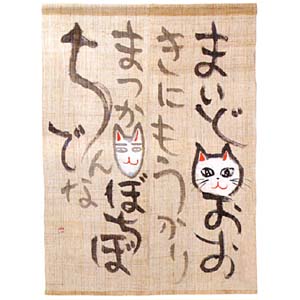 まいどおお
きにもうかり
まっかぼちぼ
ちでんな